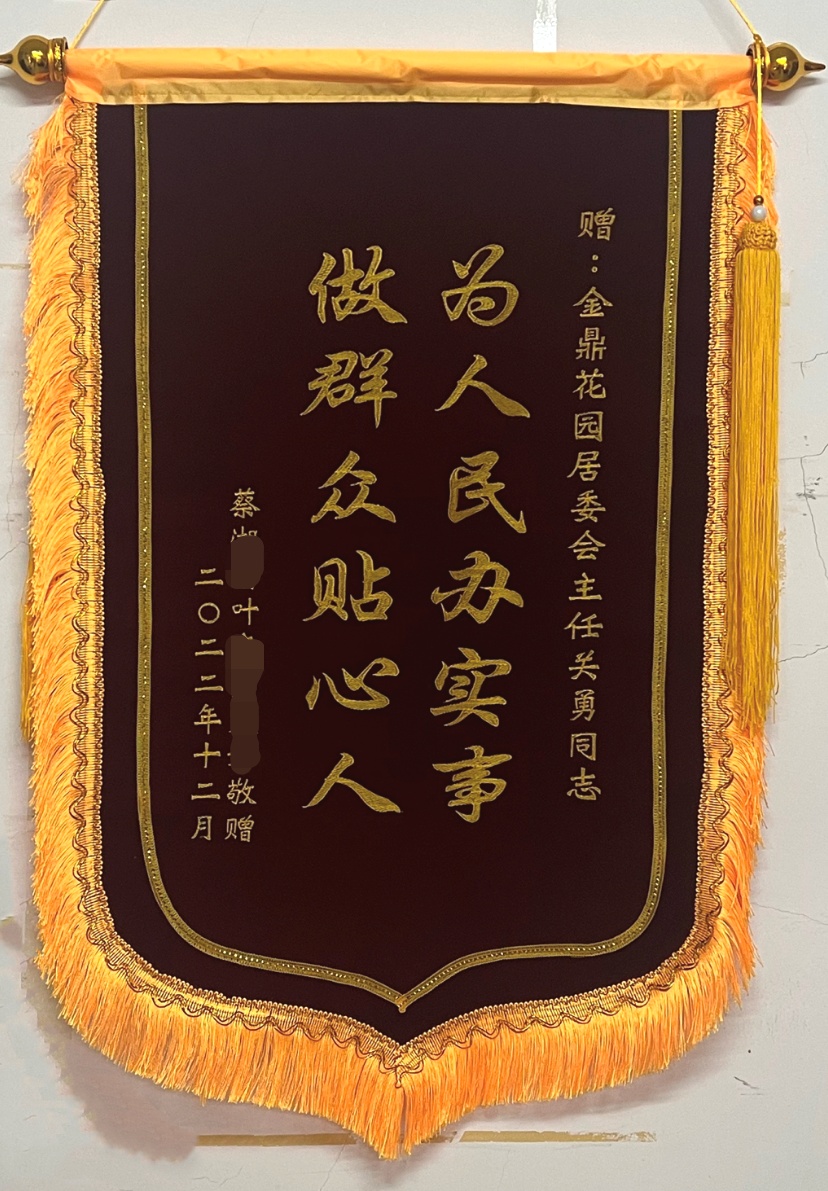 赠：金鼎花园居委会主任关勇同志
为人民办实事
做群众贴心人
蔡 叶 敬赠
二〇二二年十二月